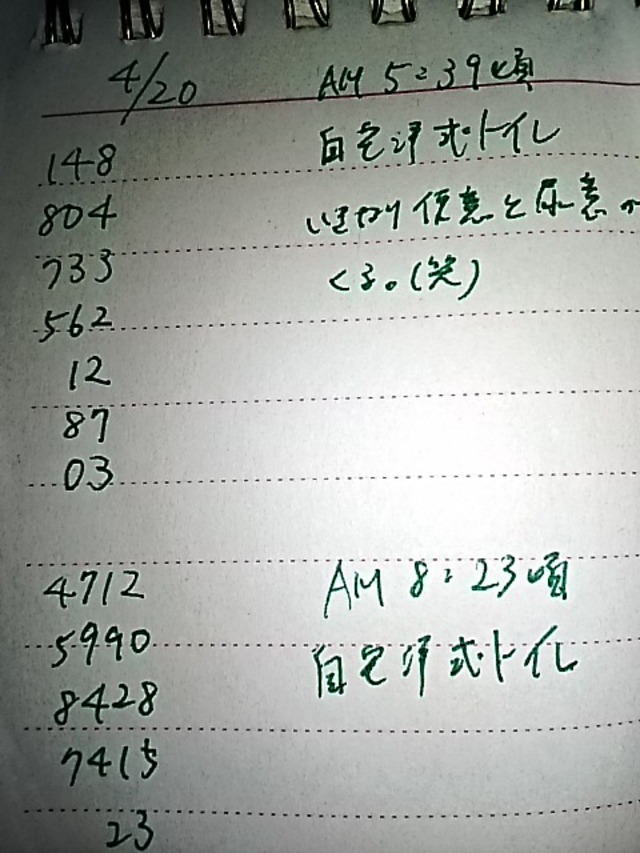 4/20 AM 5:39頃
148 自宅洋式トイレ
804 いきなり便意と尿意が
733 くる。(笑)
562
12
87
03
4712 AM 8:23頃
5990 自宅洋式トイレ
8428
7415
23